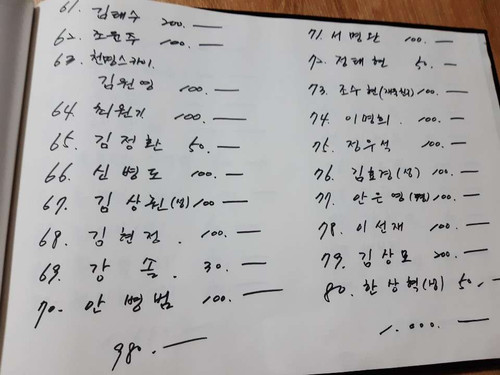 61. 김태수 200. —
62. 조윤주 100. —
63. 천명스카이.
김원영 100. —
64. 최원기 100. —
65. 김정환 50. —
66. 신병도 100. —
67. 김상원(생) 100 —
68. 김현정. 100. —
69. 강솔. 30. —
70. 안병범 100. —
980. —
71. 서명완 100. —
72. 정태현 50. —
73. 조수현 100. —
74. 이명희. 100. —
75. 정우석 100. —
76. 김효경(생) 100. —
77. 안은영 100. —
78. 이선재 100. —
79. 김상모 200. —
80. 한상혁(생) 50. —
1.000. —